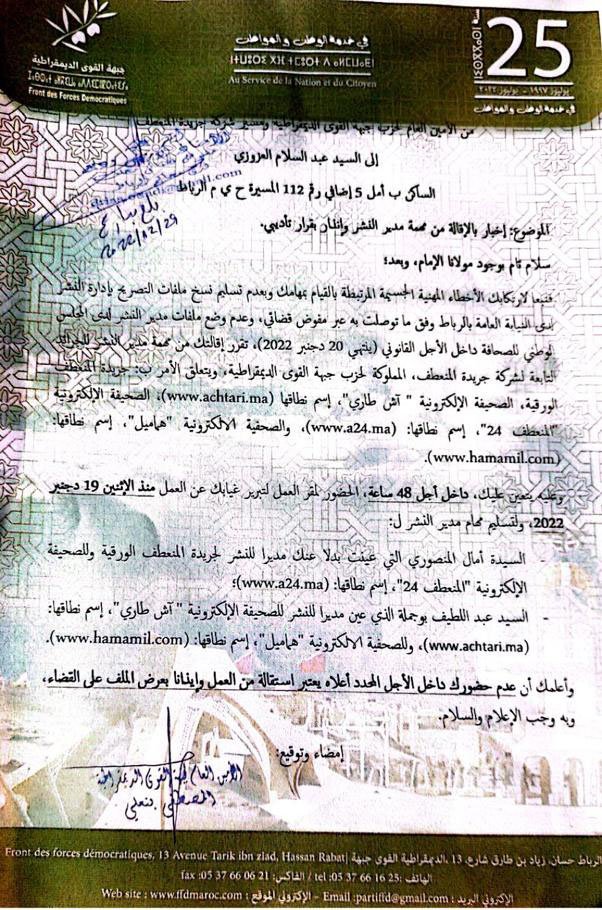 جبهة القوى الديمقراطية
Front des Forces Démocratiques
في خدمة الوطن والمواطن
Au Service de la Nation et du Citoyen
سنة
25
يوليوز ١٩٩٧ - يوليوز ٢٠٢٢
في خدمة الوطن والمواطن
من الأمين العام لحزب جبهة القوى الديمقراطية ومسير شركة جريدة المنعطف
إلى السيد عبد السلام العزوزي
الساكن ب أمل 5 إضافي رقم 112 المسيرة ح ي م الرباط
2022/12/29
الموضوع: إخبار بالإقالة من مهمة مدير النشر وإنذار بقرار تأديبي.
سلام تام بوجود مولانا الإمام، وبعد؛
فتبعا لارتكابك الأخطاء المهنية الجسيمة المرتبطة بالقيام بمهامك وبعدم تسليم نسخ ملفات التصريح بإدارة النشر
لدى النيابة العامة بالرباط وفق ما توصلت به عبر مفوض قضائي، وعدم وضع ملفات مدير النشر لدى المجلس
الوطني للصحافة داخل الأجل القانوني (ينتهي 20 دجنبر 2022)، تقرر إقالتك من مهمة مدير النشر للجرائد
التابعة لشركة جريدة المنعطف، المملوكة لحزب جبهة القوى الديمقراطية، ويتعلق الأمر ب: جريدة المنعطف
الورقية، الصحيفة الإلكترونية " آش طاري"، إسم نطاقها (www.achtari.ma)، الصحيفة الإلكترونية
"المنعطف 24"، إسم نطاقها: (www.a24.ma)، والصحفية الالكترونية "هماميل"، إسم نطاقها:
(www.hamamil.com).
وعليه يتعين عليك، داخل أجل 48 ساعة، الحضور لمقر العمل لتبرير غيابك عن العمل منذ الإثنين 19 دجنبر
2022، ولتسليم مهام مدير النشر ل:
- السيدة أمال المنصوري التي عينت بدلا عنك مديرا للنشر لجريدة المنعطف الورقية وللصحيفة
الإلكترونية "المنعطف 24"، إسم نطاقها: (www.a24.ma)؛
- السيد عبد اللطيف بوجملة الذي عين مديرا للنشر للصحيفة الإلكترونية " آش طاري"، إسم نطاقها:
(www.achtari.ma)، وللصحفية الالكترونية "هماميل"، إسم نطاقها: (www.hamamil.com).
وأعلمك أن عدم حضورك داخل الأجل المحدد أعلاه يعتبر استقالة من العمل وإيذانا بعرض الملف على القضاء،
وبه وجب الإعلام والسلام.
إمضاء وتوقيع:
الأمين العام لجبهة القوى الديمقراطية
المصطفى بنعلي
Front des forces démocratiques, 13 Avenue Tarik ibn ziad, Hassan Rabat| الرباط حسان، زياد بن طارق شارع، 13 ،الديمقراطية القوى جبهة
fax :05 37 66 06 21 :الفاكس / tel :05 37 66 16 25 :الهاتف
Web site : www.ffdmaroc.com - : الإكتروني الموقع - Email :partiffd@gmail.com : الإكتروني البريد